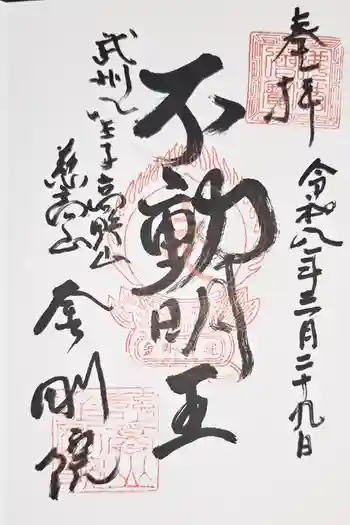 奉拝
令和八年三月二十九日
不動明王
武州八王子高野山
慈高山
金剛院